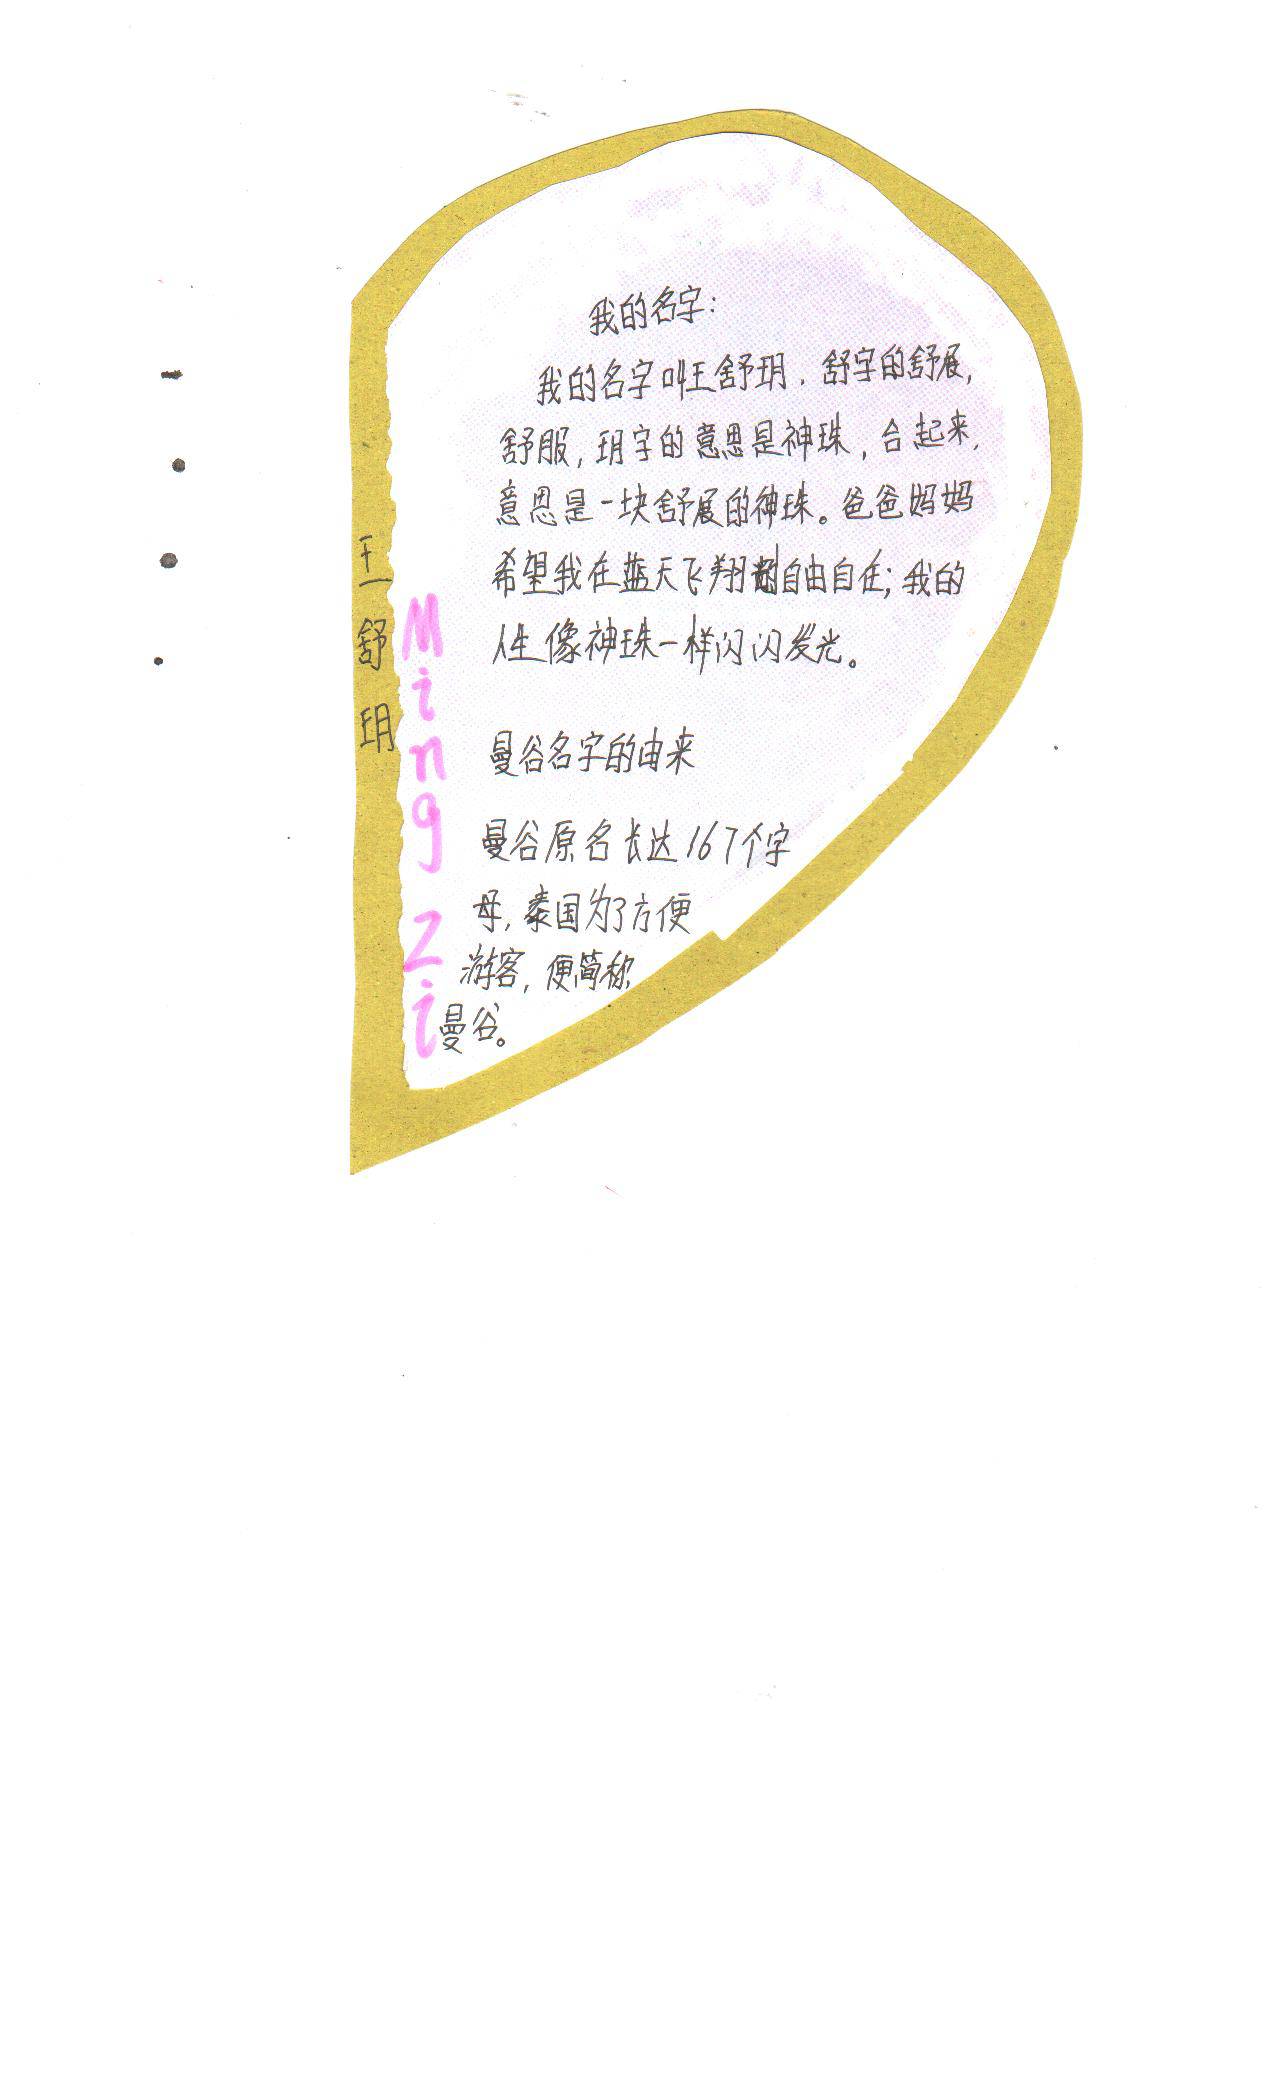 我的名字：
我的名字叫王舒玥．舒字的舒展，
舒服，玥字的意思是神珠，合起来，
意思是一块舒展的神珠。爸爸妈妈
希望我在蓝天飞翔自由自在；我的
人生像神珠一样闪闪发光。
曼谷名字的由来
曼谷原名长达167个字
母，泰国为了方便
游客，便简称
曼谷。
王舒玥
Ming zi